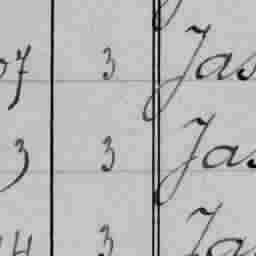 07 3 Jas
3 3 Jas
44 3 Jas